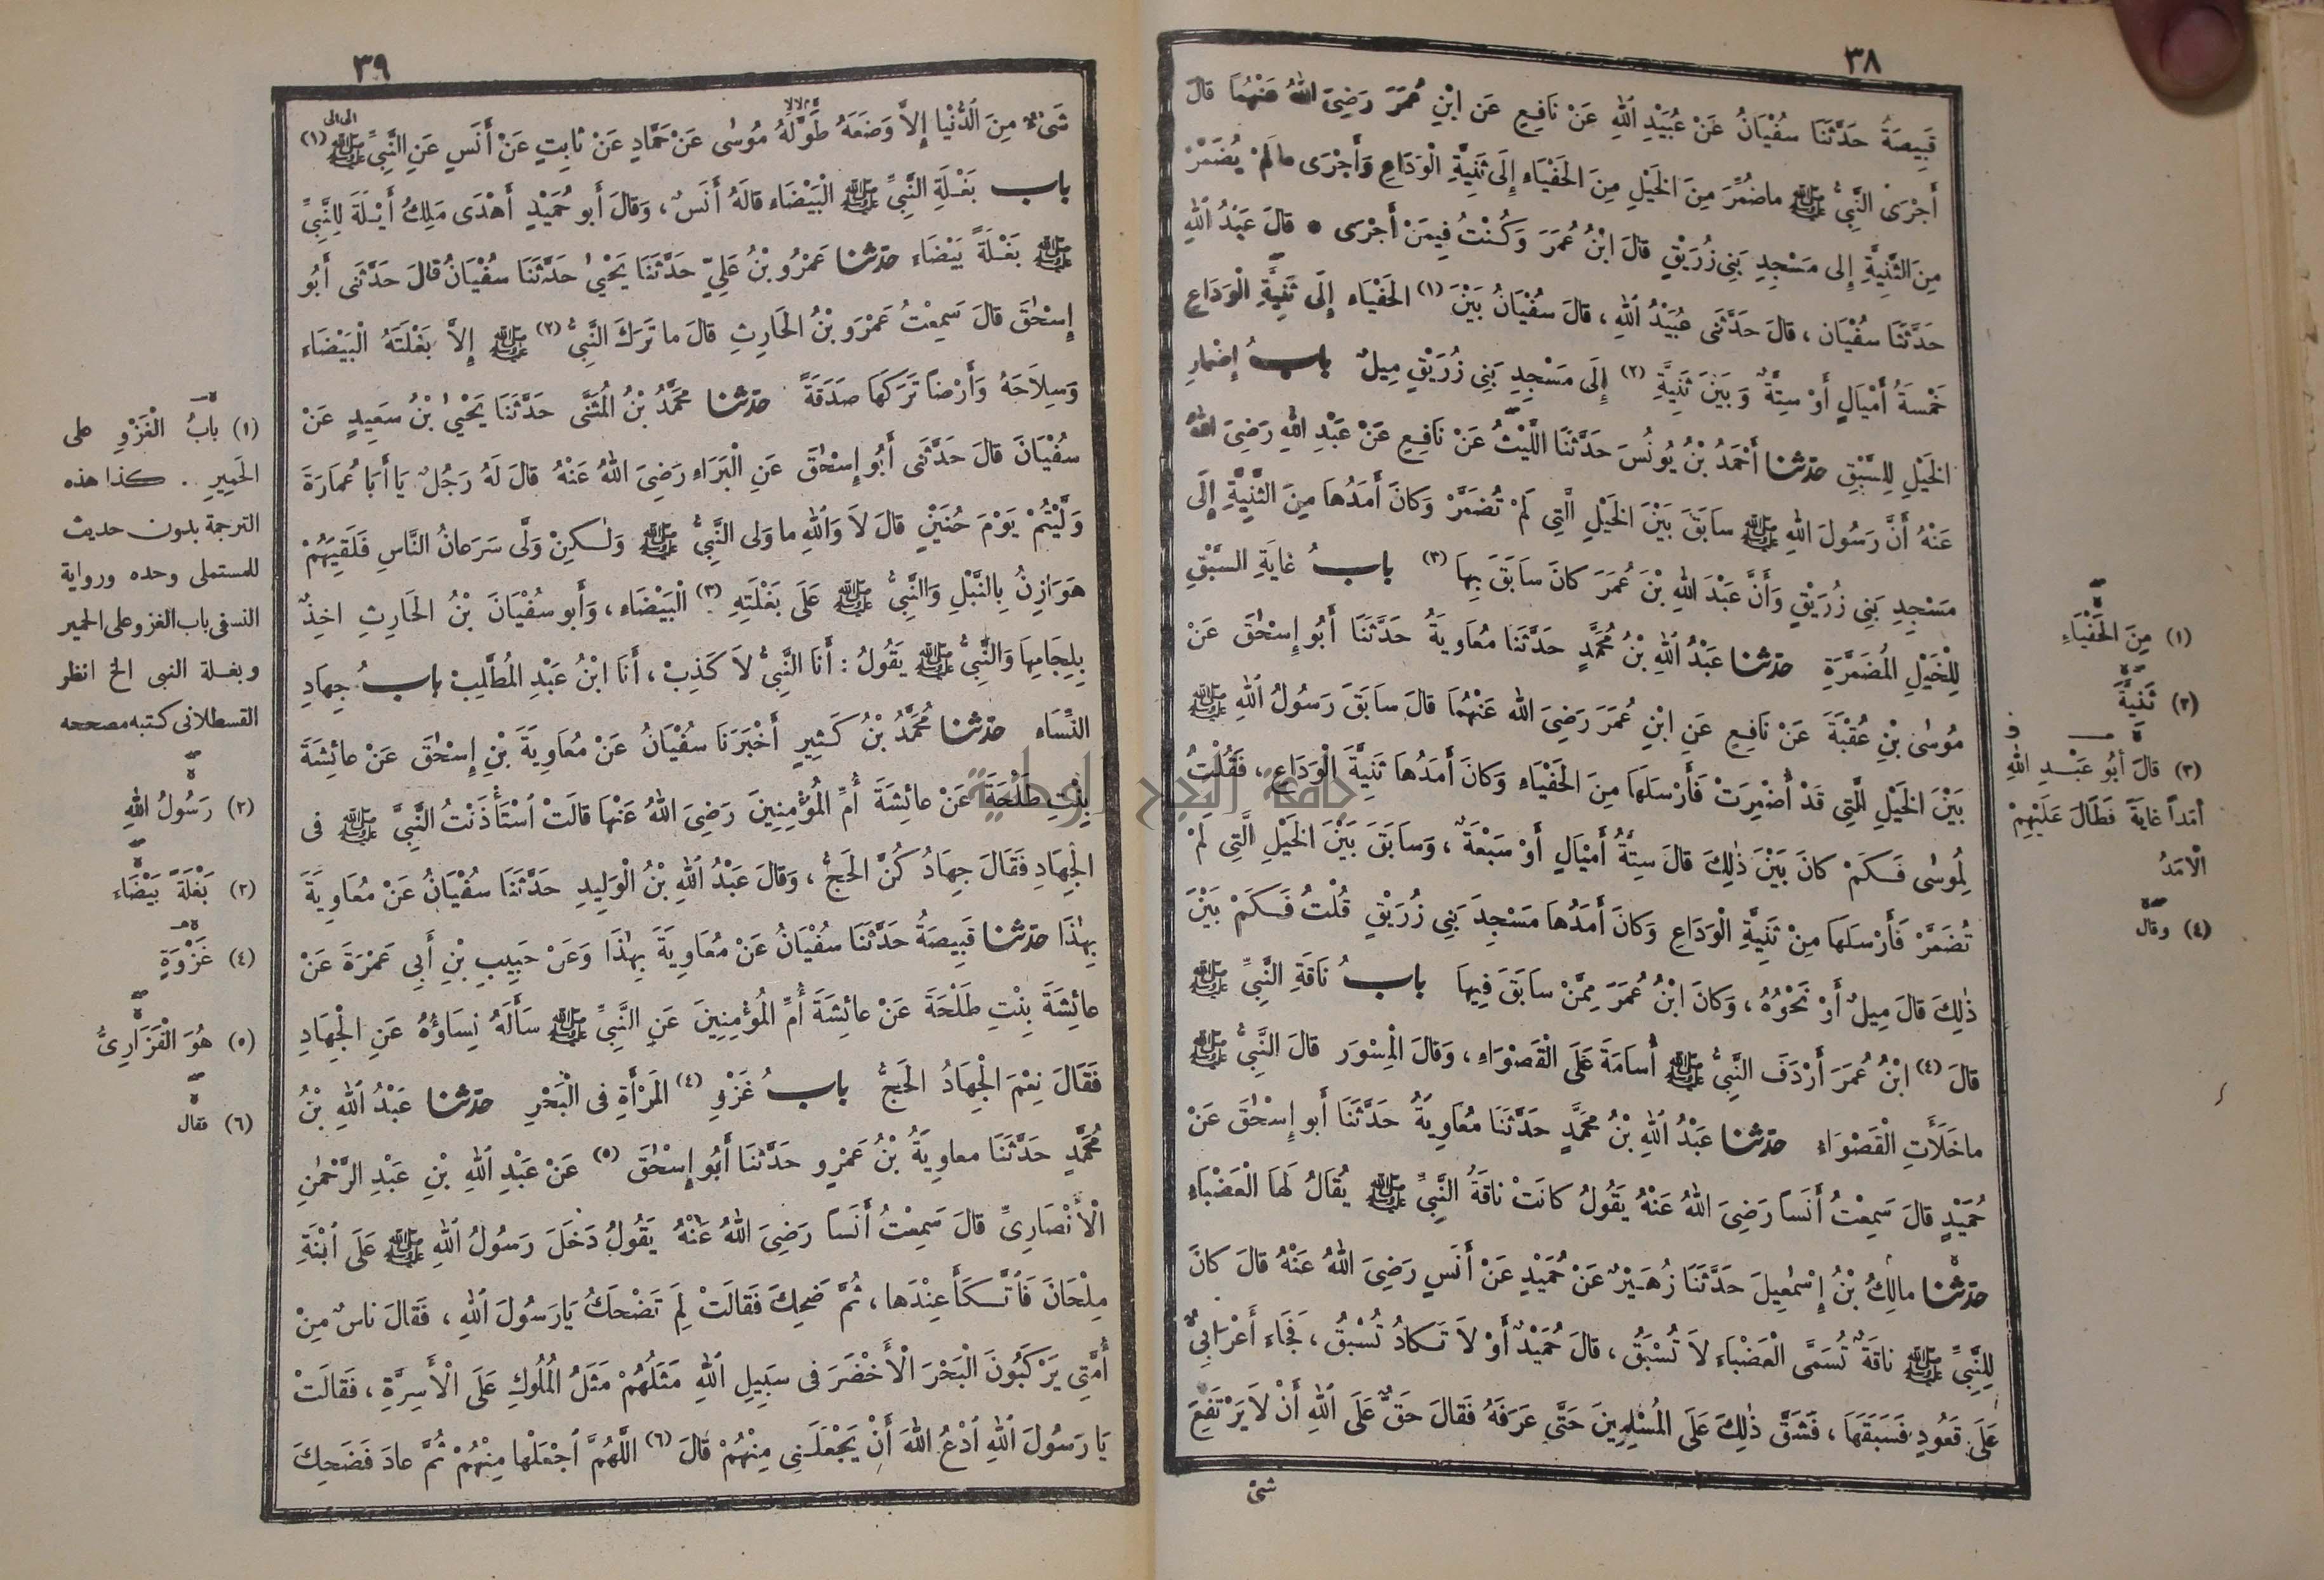 ٣٨
قَبِيصَةُ حَدَّثَنَا سُفْيَانُ عَنْ عُبَيْدِ اللهِ عَنْ نَافِعٍ عَنِ ابْنِ عُمَرَ رَضِيَ اللهُ عَنْهُمَا قالَ
أَجْرَى النَّبِيُّ ﷺ ماضُمِّرَ مِنَ الخَيْلِ مِنَ الحَفْيَاءِ إِلَى ثَنِيَّةِ الْوَدَاعِ وَأَجْرَى مالَمْ يُضَمَّرْ
مِنَ الثَّنِيَّةِ إِلى مَسْجِدِ بَنِي زُرَيْقٍ قالَ ابْنُ عُمَرَ وَكُنْتُ فِيمَنْ أَجْرَى • قالَ عَبْدُ اللهِ
حَدَّثَنَا سُفْيَان ، قالَ حَدَّثَنِي عُبَيْدُ اللهِ ، قالَ سُفْيَانُ بَيْنَ (١) الحَفْيَاءِ إِلَى ثَنِيَّةِ الْوَدَاعِ
خَمْسَةُ أَمْيَالٍ أَوْ سِتَّةٌ وَبَيْنَ ثَنِيَّةِ (٢) إِلَى مَسْجِدِ بَنِي زُرَيْقٍ مِيلٌ بابُ إِضْمارِ
الخَيْلِ لِلسَّبْقِ حدّثنا أَحْمَدُ بْنُ يُونُسَ حَدَّثَنَا اللَّيْثُ عَنْ نَافِعٍ عَنْ عَبْدِ اللهِ رَضِيَ اللهُ
عَنْهُ أَنَّ رَسُولَ اللهِ ﷺ سابَقَ بَيْنَ الخَيْلِ الَّتِي لَمْ تُضَمَّرْ وَكانَ أَمَدُها مِنَ الثَّنِيَّةِ إِلَى
مَسْجِدِ بَنِي زُرَيْقٍ وَأَنَّ عَبْدَ اللهِ بْنَ عُمَرَ كانَ سَابَقَ بِهَا (٣) بابُ غايَةِ السَّبْقِ
لِلْخَيْلِ المُضَمَّرَةِ حدّثنا عَبْدُ اللهِ بْنُ مُحَمَّدٍ حَدَّثَنَا مُعَاوِيَةُ حَدَّثَنَا أَبُو إِسْحٰقَ عَنْ
مُوسٰى بْنِ عُقْبَةَ عَنْ نَافِعٍ عَنِ ابْنِ عُمَرَ رَضِيَ الله عَنْهُمَا قالَ سَابَقَ رَسُولُ اللهِ ﷺ
بَيْنَ الخَيْلِ الَّتِي قَدْ أُضْمِرَتْ فَأَرْسَلَهَا مِنَ الحَفْيَاءِ وَكانَ أَمَدُهَا ثَنِيَّةَ الْوَدَاعِ ، فَقُلْتُ
لِمُوسٰى فَكَمْ كانَ بَيْنَ ذٰلِكَ قالَ سِتَّةُ أَمْيَالٍ أَوْ سَبْعَةٌ ، وَسَابَقَ بَيْنَ الخَيْلِ الَّتِي لَمْ
تُضَمَّرْ فَأَرْسَلَهَا مِنْ ثَنِيَّةِ الْوَدَاعِ وَكانَ أَمَدُهَا مَسْجِدَ بَنِي زُرَيْقٍ قُلْتُ فَكَمْ بَيْنَ
ذٰلِكَ قالَ مِيلٌ أَوْ نَحْوُهُ ، وَكانَ ابْنُ عُمَرَ مِمَّنْ سابَقَ فِيهَا بابُ نَاقَةِ النَّبِيِّ ﷺ
قالَ (٤) ابْنُ عُمَرَ أَرْدَفَ النَّبِيُّ ﷺ أُسَامَةَ عَلَى الْقَصْوَاءِ ، وَقالَ الْمِسْوَر قالَ النَّبِيُّ ﷺ
ماخَلَأَتِ الْقَصْوَاءُ حدّثنا عَبْدُ اللهِ بْنُ مُحَمَّدٍ حَدَّثَنَا مُعَاوِيَةُ حَدَّثَنَا أَبو إِسْحٰقَ عَنْ
حُمَيْدٍ قالَ سَمِعْتُ أَنَساً رَضِيَ اللهُ عَنْهُ يَقُولُ كانَتْ ناقَةُ النَّبِيِّ ﷺ يُقَالُ لَهَا الْعَضْبَاءُ
حدّثنا مالِكُ بْنُ إِسْمٰعِيلَ حَدَّثَنَا زُهَيْرٌ عَنْ حُمَيْدٍ عَنْ أَنَسٍ رَضِيَ اللهُ عَنْهُ قالَ كانَ
لِلنَّبِيِّ ﷺ ناقَةٌ تُسَمَّى الْعَضْبَاءَ لاَ تُسْبَقُ ، قالَ حُمَيْدٌ أَوْ لاَ تَكادُ تُسْبَقُ ، فَجَاءَ أَعْرَابِيٌّ
عَلَى قَعُودٍ فَسَبَقَهَا ، فَشَقَّ ذٰلِكَ عَلَى المُسْلِمِينَ حَتَّى عَرَفَهُ فَقالَ حَقٌّ عَلَى اللهِ أَنْ لاَ يَرْتَفِعَ
شئ
(١) مِنَ الحَفْيَاءِ
(٢) ثَنِيَّةَ
(٣) قالَ أَبُو عَبْدِ اللهِ
أَمَداً غايَةً فَطَالَ عَلَيْهِمْ
الْأَمَدُ
(٤) وقال
٣٩
شَىْءٌ مِنَ الدُّنْيَا إِلاَّ وَضَعَهُ طَوَّلَهُ مُوسٰى عَنْ حَمَّادٍ عَنْ ثابِتٍ عَنْ أَنَسٍ عَنِ النَّبِيِّ ﷺ (١)
باب بَغْلَةِ النَّبِيِّ ﷺ الْبَيْضَاءِ قالَهُ أَنَسٌ ، وَقالَ أَبو حُمَيْدٍ أَهْدَى مَلِكُ أَيْلَةَ لِلنَّبِيِّ
ﷺ بَغْلَةً بَيْضَاءَ حدّثنا عَمْرُو بْنُ عَلِيٍّ حَدَّثَنَا يَحْيٰى حَدَّثَنَا سُفْيَانُ قالَ حَدَّثَنِى أَبُو
إِسْحٰقَ قالَ سَمِعْتُ عَمْرَو بْنُ الحَارِثِ قالَ ما تَرَكَ النَّبِيُّ (٢) ﷺ إِلاَّ بَغْلَتَهُ الْبَيْضَاءَ
وَسِلاَحَهُ وَأَرْضاً تَرَكَهَا صَدَقَةً حدّثنا مُحَمَّدُ بْنُ المُثَنَّى حَدَّثَنَا يَحْيٰى بْنُ سَعِيدٍ عَنْ
سُفْيَانَ قالَ حَدَّثَنِى أَبُو إِسْحٰقَ عَنِ الْبَرَاءِ رَضِيَ اللهُ عَنْهُ قالَ لَهُ رَجُلٌ يَا أَبَا عُمَارَةَ
وَلَّيْتُمْ يَوْمَ حُنَيْنٍ قالَ لاَ وَاللهِ ما وَلى النَّبِيُّ ﷺ وَلٰكِنْ وَلَّى سَرَعانُ النَّاسِ فَلَقِيَهُمْ
هَوَازِنُ بِالنَّبْلِ وَالنَّبِيُّ ﷺ عَلَى بَغْلَتِهِ (٣) الْبَيْضَاءِ ، وَأَبو سُفْيَانَ بْنُ الحَارِثِ آخِذٌ
بِلِجَامِهَا وَالنَّبِيُّ ﷺ يَقُولُ : أَنَا النَّبِيُّ لاَ كَذِبْ ، أَنَا ابْنُ عَبْدِ المُطَّلِبْ بابُ جِهَادِ
النِّسَاءِ حدّثنا مُحَمَّدُ بْنُ كَثِيرٍ أَخْبَرَنَا سُفْيَانُ عَنْ مُعَاوِيَةَ بْنِ إِسْحٰقَ عَنْ عائِشَةَ
بِنْتِ طَلْحَةَ عَنْ عائِشَةَ أُمِّ المُؤْمِنِينَ رَضِيَ اللهُ عَنْهَا قالَتْ اسْتَأْذَنْتُ النَّبِيَّ ﷺ فى
الْجِهَادِ فَقَالَ جِهَادُ كُنَّ الحَجُّ ، وَقالَ عَبْدُ اللهِ بْنُ الْوَلِيدِ حَدَّثَنَا سُفْيَانُ عَنْ مُعَاوِيَةَ
بِهٰذَا حدّثنا قَبِيصَةُ حَدَّثَنَا سُفْيَانُ عَنْ مُعَاوِيَةَ بِهٰذَا وَعَنْ حَبِيبِ بْنِ أَبِى عَمْرَةَ عَنْ
عائِشَةَ بِنْتِ طَلْحَةَ عَنْ عائِشَةَ أُمِّ المُؤْمِنِينَ عَنِ النَّبِيِّ ﷺ سَأَلَهُ نِسَاؤُهُ عَنِ الْجِهَادِ
فَقَالَ نِعْمَ الْجِهَادُ الحَجُّ بابُ غَزْوِ (٤) المَرْأَةِ فى الْبَحْرِ حدّثنا عَبْدُ اللهِ بْنُ
مُحَمَّدٍ حَدَّثَنَا معاوِيَةُ بْنُ عَمْرٍو حَدَّثَنَا أَبُو إِسْحٰقَ (٥) عَنْ عَبْدِ اللهِ بْنِ عَبْدِ الرَّحْمٰنِ
الْأَنْصَارِىِّ قالَ سَمِعْتُ أَنَسا رَضِيَ اللهُ عَنْهُ يَقُولُ دَخَلَ رَسُولُ اللهِ ﷺ عَلَى ابْنَةِ
مِلْحَانَ فَاتَّكَأَ عِنْدَها ، ثُمَّ ضَحِكَ فَقالَتْ لِمَ تَضْحَكُ يَارَسُولَ اللهِ ، فَقَالَ ناسٌ مِنْ
أُمَّتِى يَرْكَبُونَ الْبَحْرَ الْأَخْضَرَ فى سَبِيلِ اللهِ مَثَلُهُمْ مَثَلُ المُلُوكِ عَلَى الْأَسِرَّةِ ، فَقالَتْ
يَا رَسُولَ اللهِ ادْعُ اللهَ أَنْ يَجْعَلَنِى مِنْهُمْ قالَ (٦) اللَّهُمَّ اجْعَلْها مِنْهُمْ ثُمَّ عادَ فَضَحِكَ
(١) بابُ الْغَزْوِ على
الحَمِيرِ . كذا هذه
الترجمة بدون حديث
للمستملى وحده ورواية
النسفى باب الغزو على الحمير
وبغلة النبى الخ انظر
القسطلانى كتبه مصححه
(٢) رَسُولُ اللهِ
(٣) بَغْلَةً بَيْضَاءَ
(٤) غَزْوَةِ
(٥) هُوَ الْفَزَارِىُّ
(٦) فقال
جامعة النجاح الوطنية